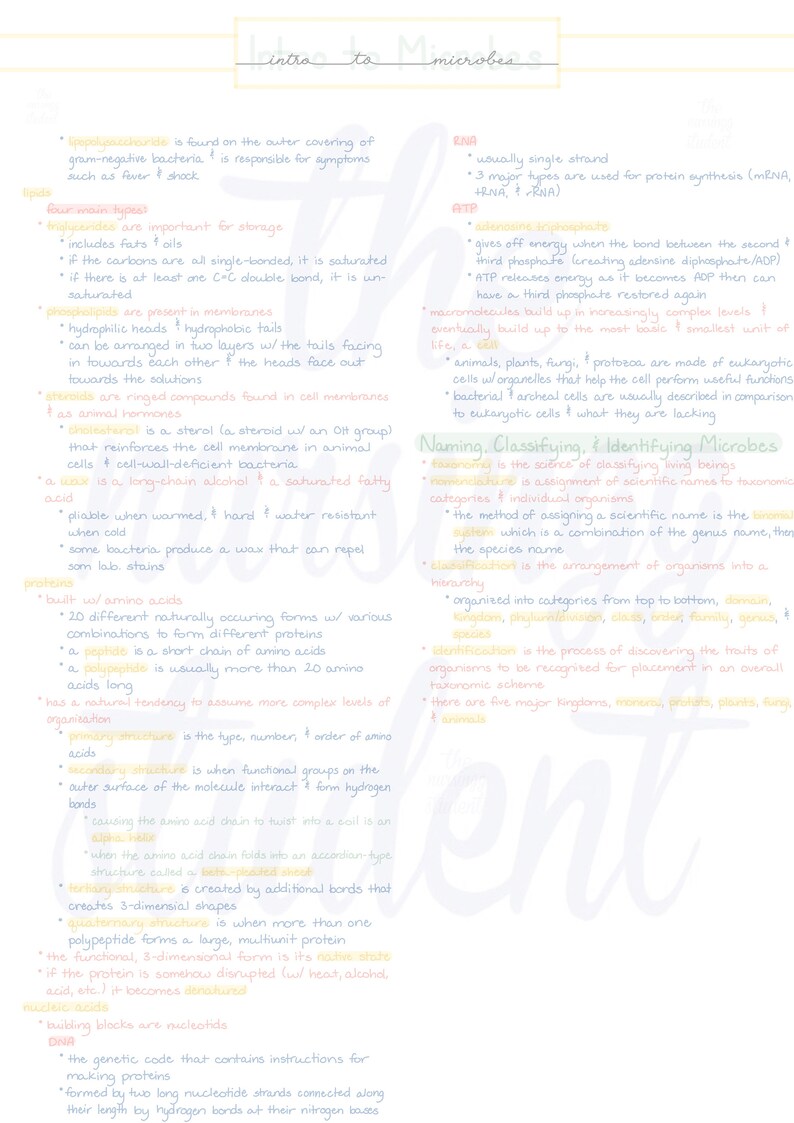 Intro to Microbes
intro to microbes
the nursing student
the nursing student
the nursing student
* lipopolysaccharide is found on the outer covering of
gram-negative bacteria & is responsible for symptoms
such as fever & shock
lipids
four main types:
* triglycerides are important for storage
* includes fats & oils
* if the carbons are all single-bonded, it is saturated
* if there is at least one C=C double bond, it is un-
saturated
* phospholipids are present in membranes
* hydrophilic heads & hydrophobic tails
* can be arranged in two layers w/ the tails facing
in towards each other & the heads face out
towards the solutions
* steroids are ringed compounds found in cell membranes
& as animal hormones
* cholesterol is a sterol (a steroid w/ an OH group)
that reinforces the cell membrane in animal
cells & cell-wall-deficient bacteria
* a wax is a long-chain alcohol & a saturated fatty
acid
* pliable when warmed, & hard & water resistant
when cold
* some bacteria produce a wax that can repel
som lab. stains
proteins
* built w/ amino acids
* 20 different naturally occuring forms w/ various
combinations to form different proteins
* a peptide is a short chain of amino acids
* a polypeptide is usually more than 20 amino
acids long
* has a natural tendency to assume more complex levels of
organization
* primary structure is the type, number, & order of amino
acids
* secondary structure is when functional groups on the
* outer surface of the molecule interact & form hydrogen
bonds
* causing the amino acid chain to twist into a coil is an
alpha helix
* when the amino acid chain folds into an accordian-type
structure called a beta-pleated sheet
* tertiary structure is created by additional bonds that
creates 3-dimensial shapes
* quaternary structure is when more than one
polypeptide forms a large, multiunit protein
* the functional, 3-dimensional form is its native state
* if the protein is somehow disrupted (w/ heat, alcohol,
acid, etc.) it becomes denatured
nucleic acids
* buibling blocks are nucleotids
DNA
* the genetic code that contains instructions for
making proteins
* formed by two long nucleotide strands connected along
their length by hydrogen bonds at their nitrogen bases
RNA
* usually single strand
* 3 major types are used for protein synthesis (mRNA,
tRNA, & rRNA)
ATP
* adenosine triphosphate
* gives off energy when the bond between the second &
third phosphate (creating adensine diphosphate/ADP)
* ATP releases energy as it becomes ADP then can
have a third phosphate restored again
* macromolecules build up in increasingly complex levels &
eventually build up to the most basic & smallest unit of
life, a cell
* animals, plants, fungi, & protozoa are made of eukaryotic
cells w/ organelles that help the cell perform useful functions
* bacterial & archeal cells are usually described in comparison
to eukaryotic cells & what they are lacking
Naming, Classifying, & Identifying Microbes
* taxonomy is the science of classifying living beings
* nomenclature is assignment of scientific names to taxonomic
categories & individual organisms
* the method of assigning a scientific name is the binomial
system which is a combination of the genus name, then
the species name
* classification is the arrangement of organisms into a
hierarchy
* organized into categories from top to bottom, domain,
kingdom, phylum/division, class, order, family, genus, &
species
* identification is the process of discovering the traits of
organisms to be recognized for placement in an overall
taxonomic scheme
* there are five major kingdoms, monera, protists, plants, fungi,
& animals
the nursing student